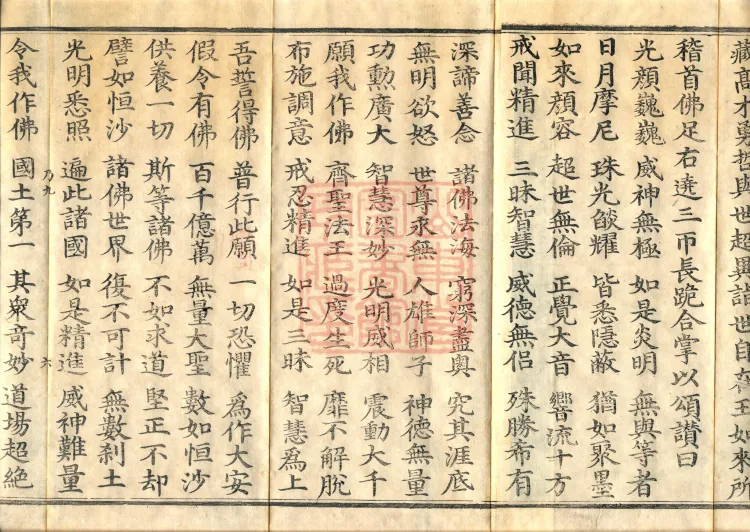 藏高才勇哲與世超異詣世自在王如來所
稽首佛足右遶三帀長跪合掌以頌讃曰
光顏巍巍 威神無極 如是炎明 無與等者
日月摩尼 珠光燄耀 皆悉隱蔽 猶如聚墨
如來顏容 超世無倫 正覺大音 響流十方
戒聞精進 三昧智慧 威德無侶 殊勝希有
深諦善念 諸佛法海 窮深盡奧 究其涯底
無明欲怒 世尊永無 人雄師子 神德無量
功勳廣大 智慧深妙 光明威相 震動大千
願我作佛 齊聖法王 過度生死 靡不解脫
布施調意 戒忍精進 如是三昧 智慧爲上
吾誓得佛 普行此願 一切恐懼 爲作大安
假令有佛 百千億萬 無量大聖 數如恒沙
供養一切 斯等諸佛 不如求道 堅正不却
譬如恒沙 諸佛世界 復不可計 無數剎土
光明悉照 遍此諸國 如是精進 威神難量
乃九 六
令我作佛 國土第一 其衆奇妙 道場超絶